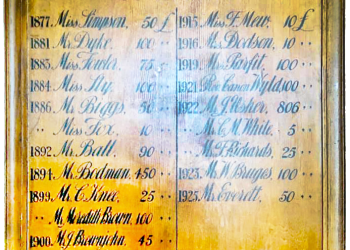 1877. Miss Simpson, 50 £
1881 Mr. Dyke, 100 ..
1883. Miss Fowler, 75 ..
1884. Miss Sly, 100 ..
1886. Mr. Biggs, 50 ..
.. Miss Fox, 10 ..
1892. Mr. Ball, 90 ..
1894. Mr. Bodman, 450 ..
1899. Mr. C. Knee, 25 ..
.. Mr. Meredith Brown, 100 ..
1900. Mr. J. Brownjohn, 45 ..
1915. Miss F. Mew, 10 £
1916. Mr. Dodson, 10 ..
1919. Mr. Parfit, 100 ..
1921 Rev. Canon Wyld 100 ..
1922 M. Plusher, 806 ..
.. Mr. C. M. White, 5 ..
Richards, 25 ..
1923. Mr. H. Bruges, 100 ..
1925. Mr. Everett, 50 ..